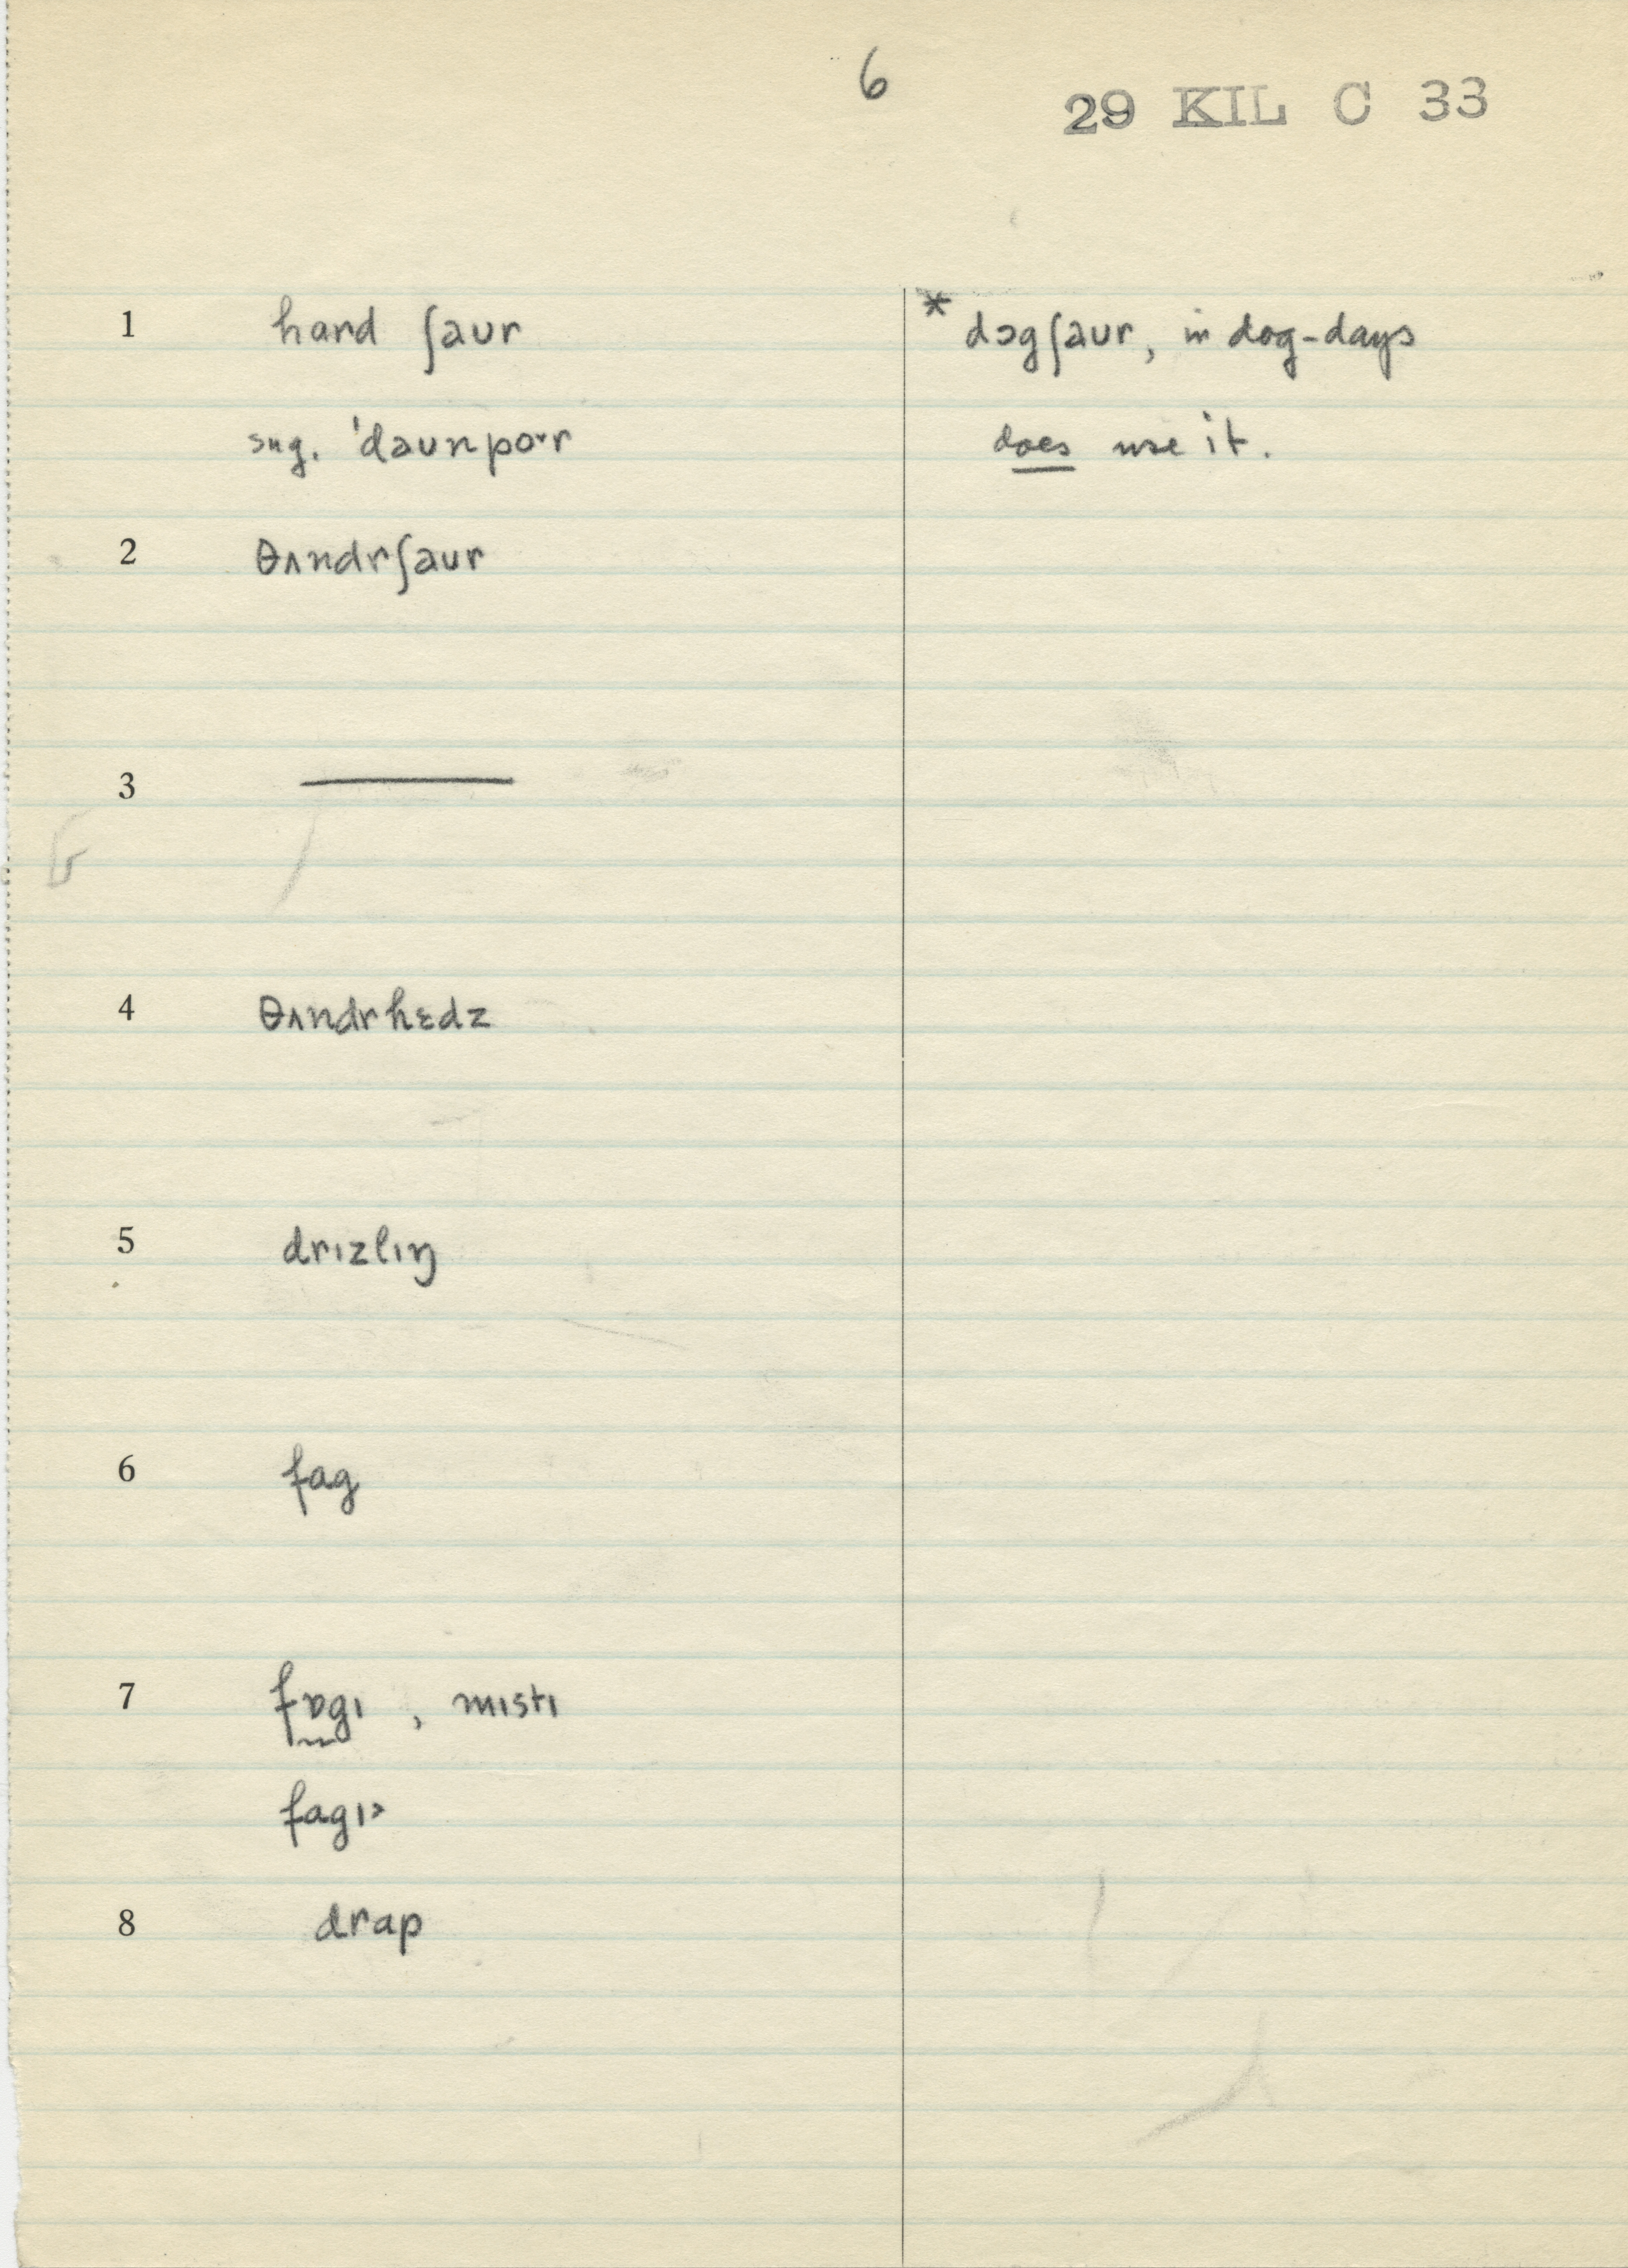 6
29 KIL C 33
1 hard ʃaur * dɔgʃaur, in dog-days
sug. ˈdaunpoˑr does use it.
2 θʌndrʃaur
3 —
4 θʌndrhɛdz
5 drɪzlɪŋ
6 fag
7 fɒgɪ, mɪstɪ
fagɪ˃
8 drap